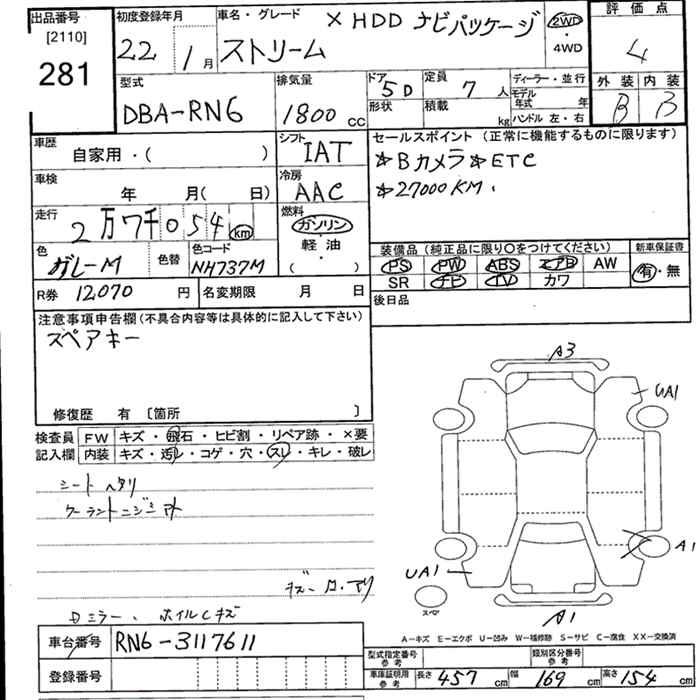 出品番号
[2110]
281
初度登録年月
22 1月
車名・グレード
X HDD ナビパッケージ
ストリーム
2WD
・
4WD
評価点
4
外装 内装
B B
型式
DBA-RN6
排気量
1800 CC
ドア 5D
形状
定員 7人
積載 kg
ディーラー・並行
モデル年式 年
ハンドル 左・右
車歴
自家用・( )
シフト
IAT
セールスポイント (正常に機能するものに限ります)
☆Bカメラ☆ETC
☆27000KM.
車検
年 月( 日)
冷房
AAC
走行
2万7千054 km
燃料
ガソリン
・
軽油
・
( )
色
ガレーM
色替
色コード
NH737M
装備品 (純正品に限り○をつけてください)
新車保証書
PS PW ABS エアB AW
SR ナビ TV カワ
有・無
R券 12,070 円
名変期限 月 日
後日品
注意事項申告欄(不具合内容等は具体的に記入して下さい)
スペアキー
修復歴 有 〔箇所 〕
検査員
記入欄
FW キズ・飛石・ヒビ割・リペア跡・×要
内装 キズ・汚レ・コゲ・穴・スレ・キレ・破レ
シートヘタリ
クーラントニジミ
Dミラー、ホイルCキズ
A3
UA1
A1
UA1
スペア
A1
A-キズ E-エクボ U-凹み W-補修跡 S-サビ C-腐食 XX-交換済
車台番号
RN6-3117611
登録番号
型式指定番号
参考
類別区分番号
参考
車庫証明用
参考
長さ 457 cm
幅 169 cm
高さ 154 cm